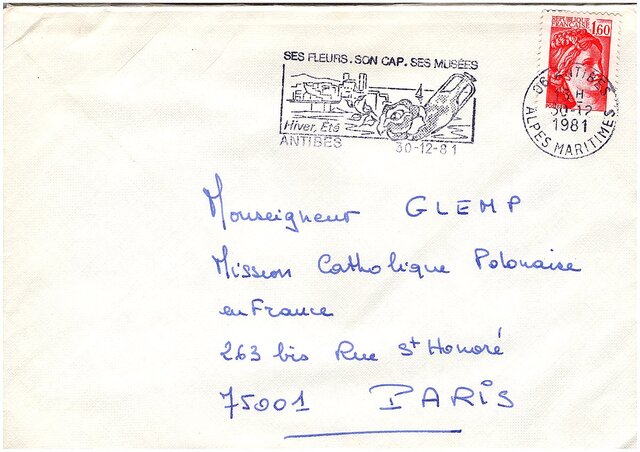 SES FLEURS. SON CAP. SES MUSÉES
Hiver, Eté
ANTIBES 30-12-81
REPUBLIQUE
FRANÇAISE 1,60
06 ANTIBES
H
30-12
1981
ALPES MARITIMES
Monseigneur GLEMP
Mission Catholique Polonaise
en France
263 bis Rue St Honoré
75001 PARIS